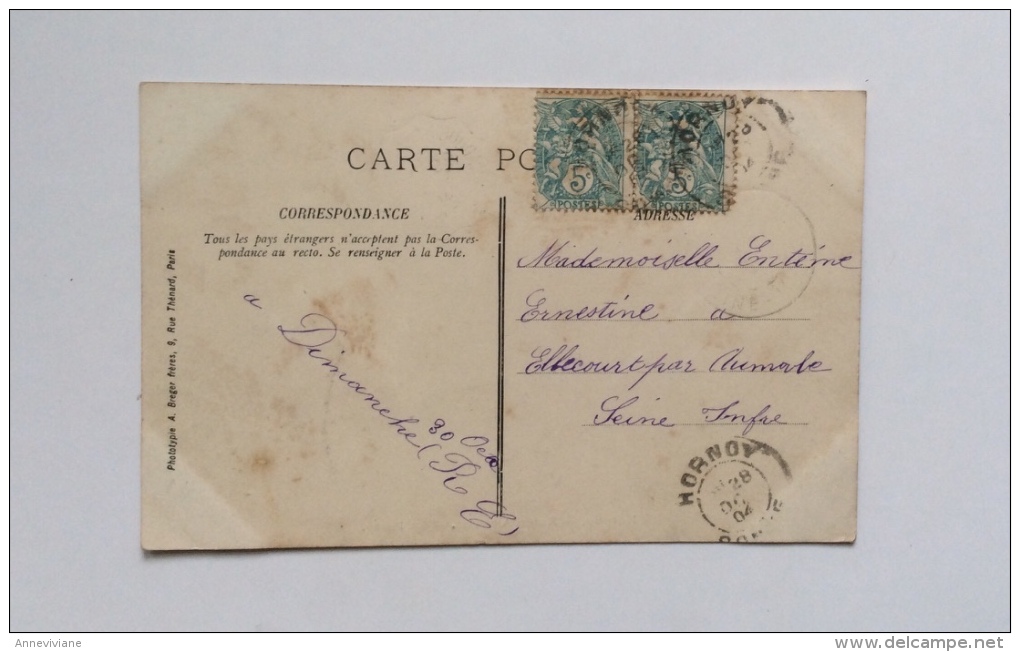 CARTE PO
5c 5c
POSTES POSTES
CORRESPONDANCE
Tous les pays étrangers n'acceptent pas la Corres-
pondance au recto. Se renseigner à la Poste.
ADRESSE
Mademoiselle Entéine
Ernestine a
Ellecourt par Aumale
Seine Infre
a Dimanche
30 Octo
(R E)
Phototypie A. Breger frères, 9, Rue Thénard, Paris
HORNOY
28
04
SOMME
Anneviviane
delcampe.net